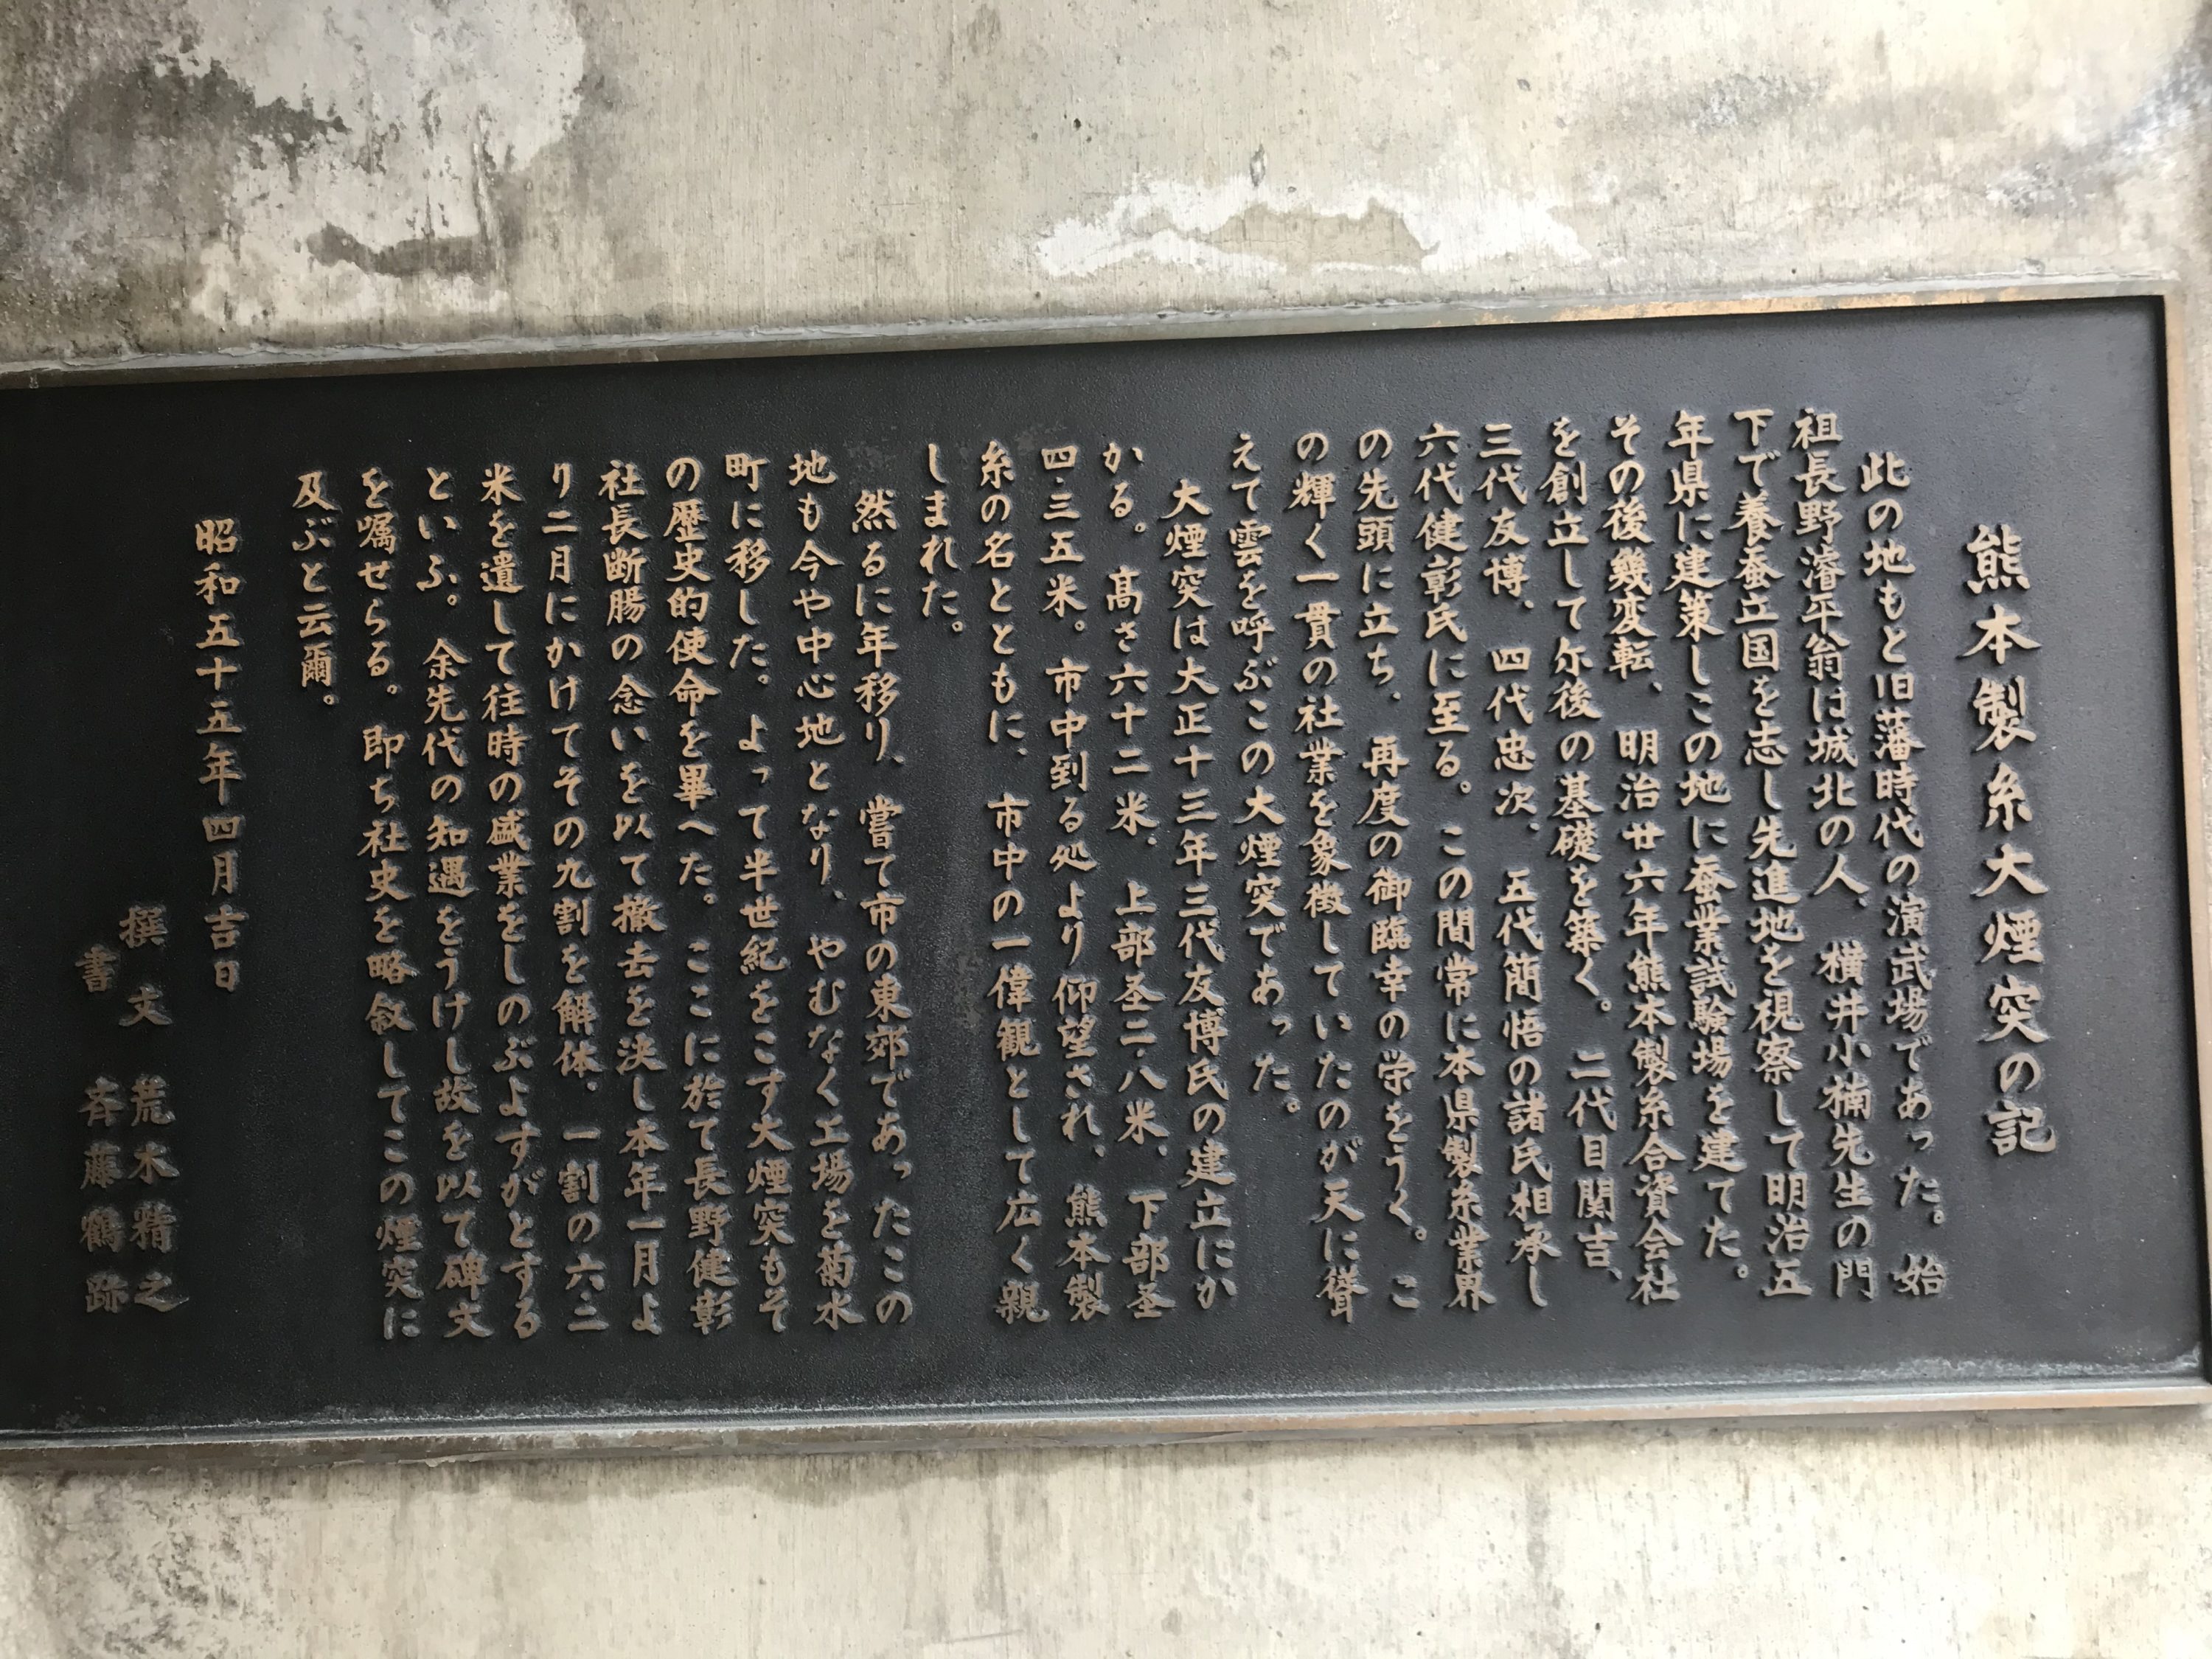 熊本製糸大煙突の記
此の地もと旧藩時代の演武場であった。始
祖長野濬平翁は城北の人、横井小楠先生の門
下で養蚕立国を志し先進地を視察して明治五
年県に建策しこの地に蚕業試験場を建てた。
その後幾変転、明治廿六年熊本製糸合資会社
を創立して尓後の基礎を築く。二代目関吉、
三代友博、四代忠次、五代簡悟の諸氏相承し
六代健彰氏に至る。この間常に本県製糸業界
の先頭に立ち、再度の御臨幸の栄をうく。こ
の輝く一貫の社業を象徴していたのが天に聳
えて雲を呼ぶこの大煙突であった。
大煙突は大正十三年三代友博氏の建立にか
かる。高さ六十二米、上部圣二・八米、下部圣
四・三五米。市中到る処より仰望され、熊本製
糸の名とともに、市中の一偉観として広く親
しまれた。
然るに年移り、嘗て市の東郊であったこの
地も今や中心地となり、やむなく工場を菊水
町に移した。よって半世紀をこす大煙突もそ
の歴史的使命を畢へた。ここに於て長野健彰
社長断腸の念いを以て撤去を決し本年一月よ
り二月にかけてその九割を解体、一割の六・二
米を遺して往時の盛業をしのぶよすがとする
といふ。余先代の知遇をうけし故を以て碑文
を嘱せらる。即ち社史を略叙してこの煙突に
及ぶと云爾。
昭和五十五年四月吉日
撰文 荒木精之
書 斉藤鶴跡